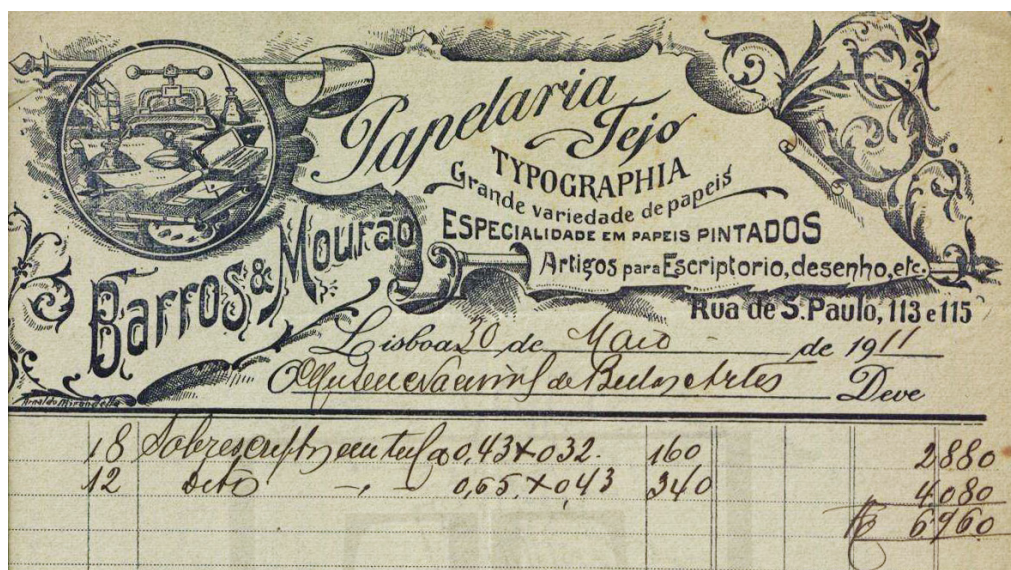 Papelaria
Tejo
TYPOGRAPHIA
Grande variedade de papeis
ESPECIALIDADE EM PAPEIS PINTADOS
Artigos para Escriptorio, desenho, etc.
Barros & Mourão
Rua de S. Paulo, 113 e 115
Lisboa 20 de Maio de 1911
O Museu Nacional de Bellas Artes Deve
Arnaldo Mirandella
18 Sobrescriptos em tela 0,43 x 032. 160 2880
12 dito - " - 0,65 x 0,43 340 4080
6960